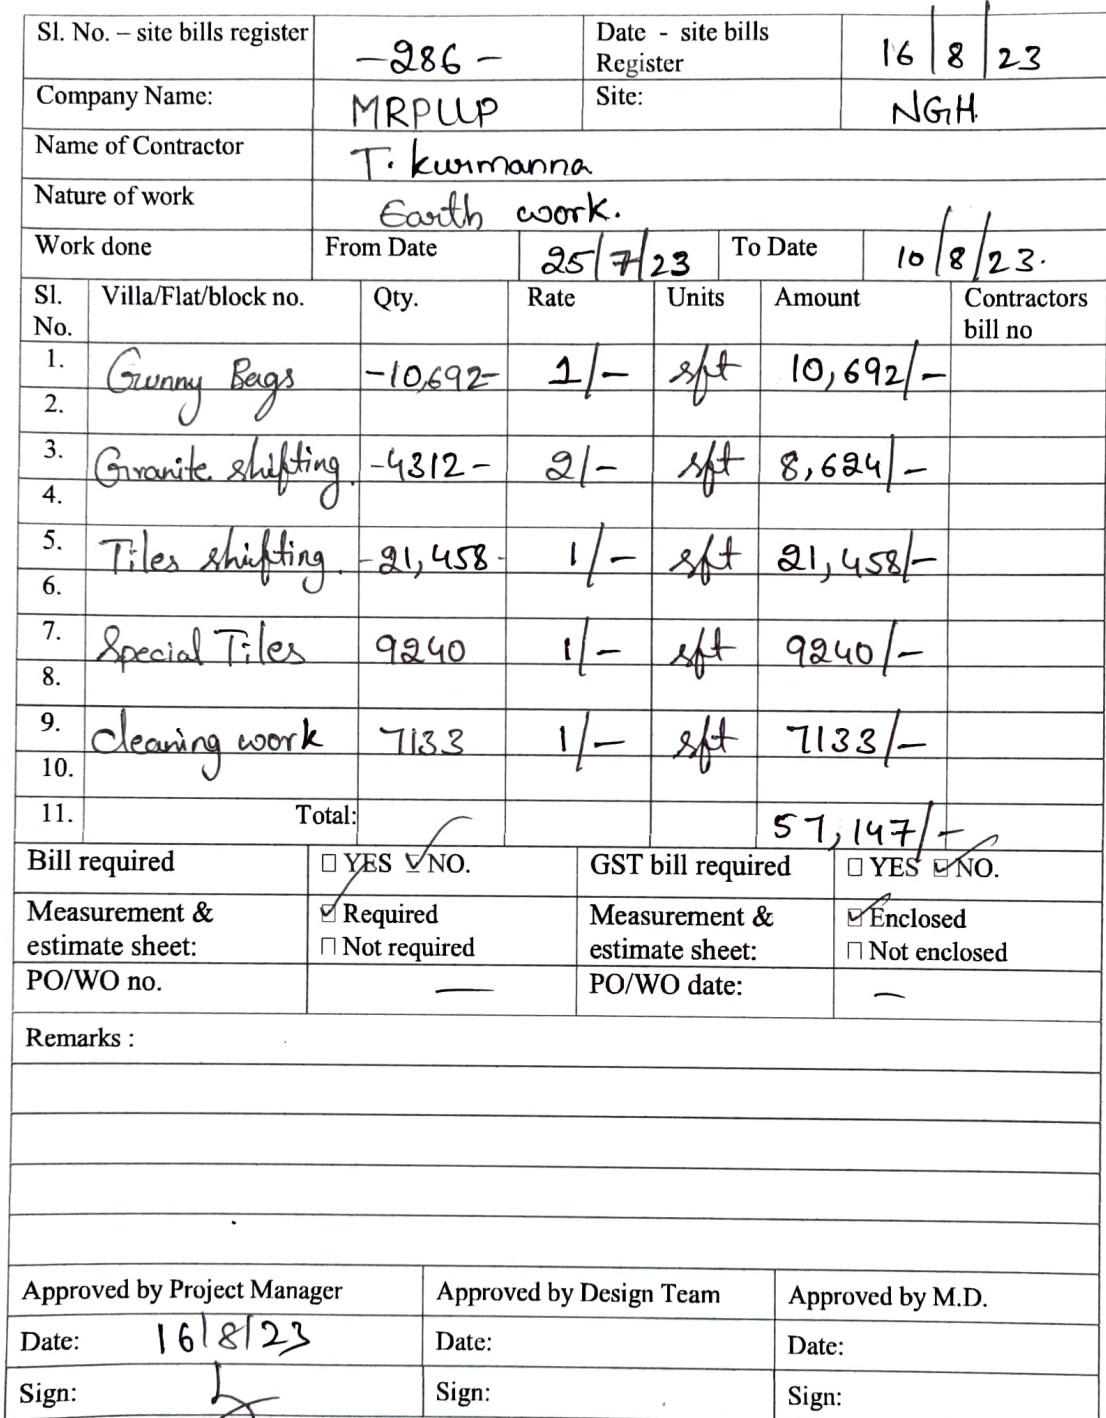 Sl. No. – site bills register -286- Date - site bills Register 16/8/23
Company Name: MRPLLP Site: NGH
Name of Contractor T. Kurmanna
Nature of work Earth work.
Work done From Date 25/7/23 To Date 10/8/23.
Sl. No. Villa/Flat/block no. Qty. Rate Units Amount Contractors bill no
1. Gunny Bags -10,692- 1/- sft 10,692/-
2.
3. Granite shifting. -4312- 2/- sft 8,624/-
4.
5. Tiles shifting. -21,458- 1/- sft 21,458/-
6.
7. Special Tiles 9240 1/- sft 9240/-
8.
9. cleaning work 7133 1/- sft 7133/-
10.
11. Total: 57,147/-
Bill required □ YES ☑ NO. GST bill required □ YES ☑ NO.
Measurement & estimate sheet: ☑ Required □ Not required Measurement & estimate sheet: ☑ Enclosed □ Not enclosed
PO/WO no. — PO/WO date: —
Remarks :
Approved by Project Manager Approved by Design Team Approved by M.D.
Date: 16/8/23 Date: Date:
Sign: Sign: Sign: